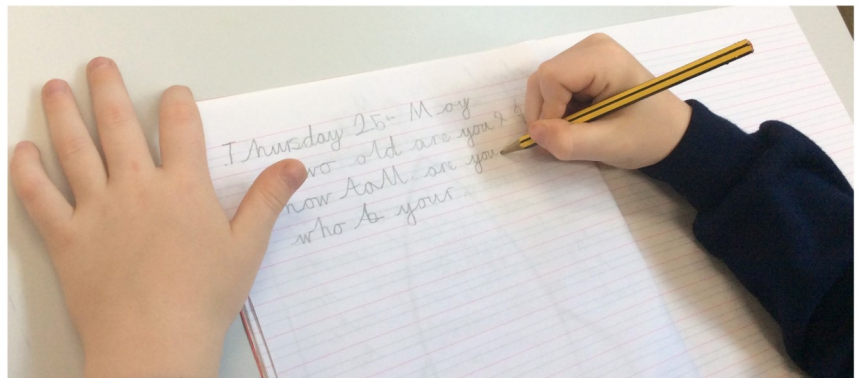 Thursday 25th May
wo old are you?
how tall are you
who is your